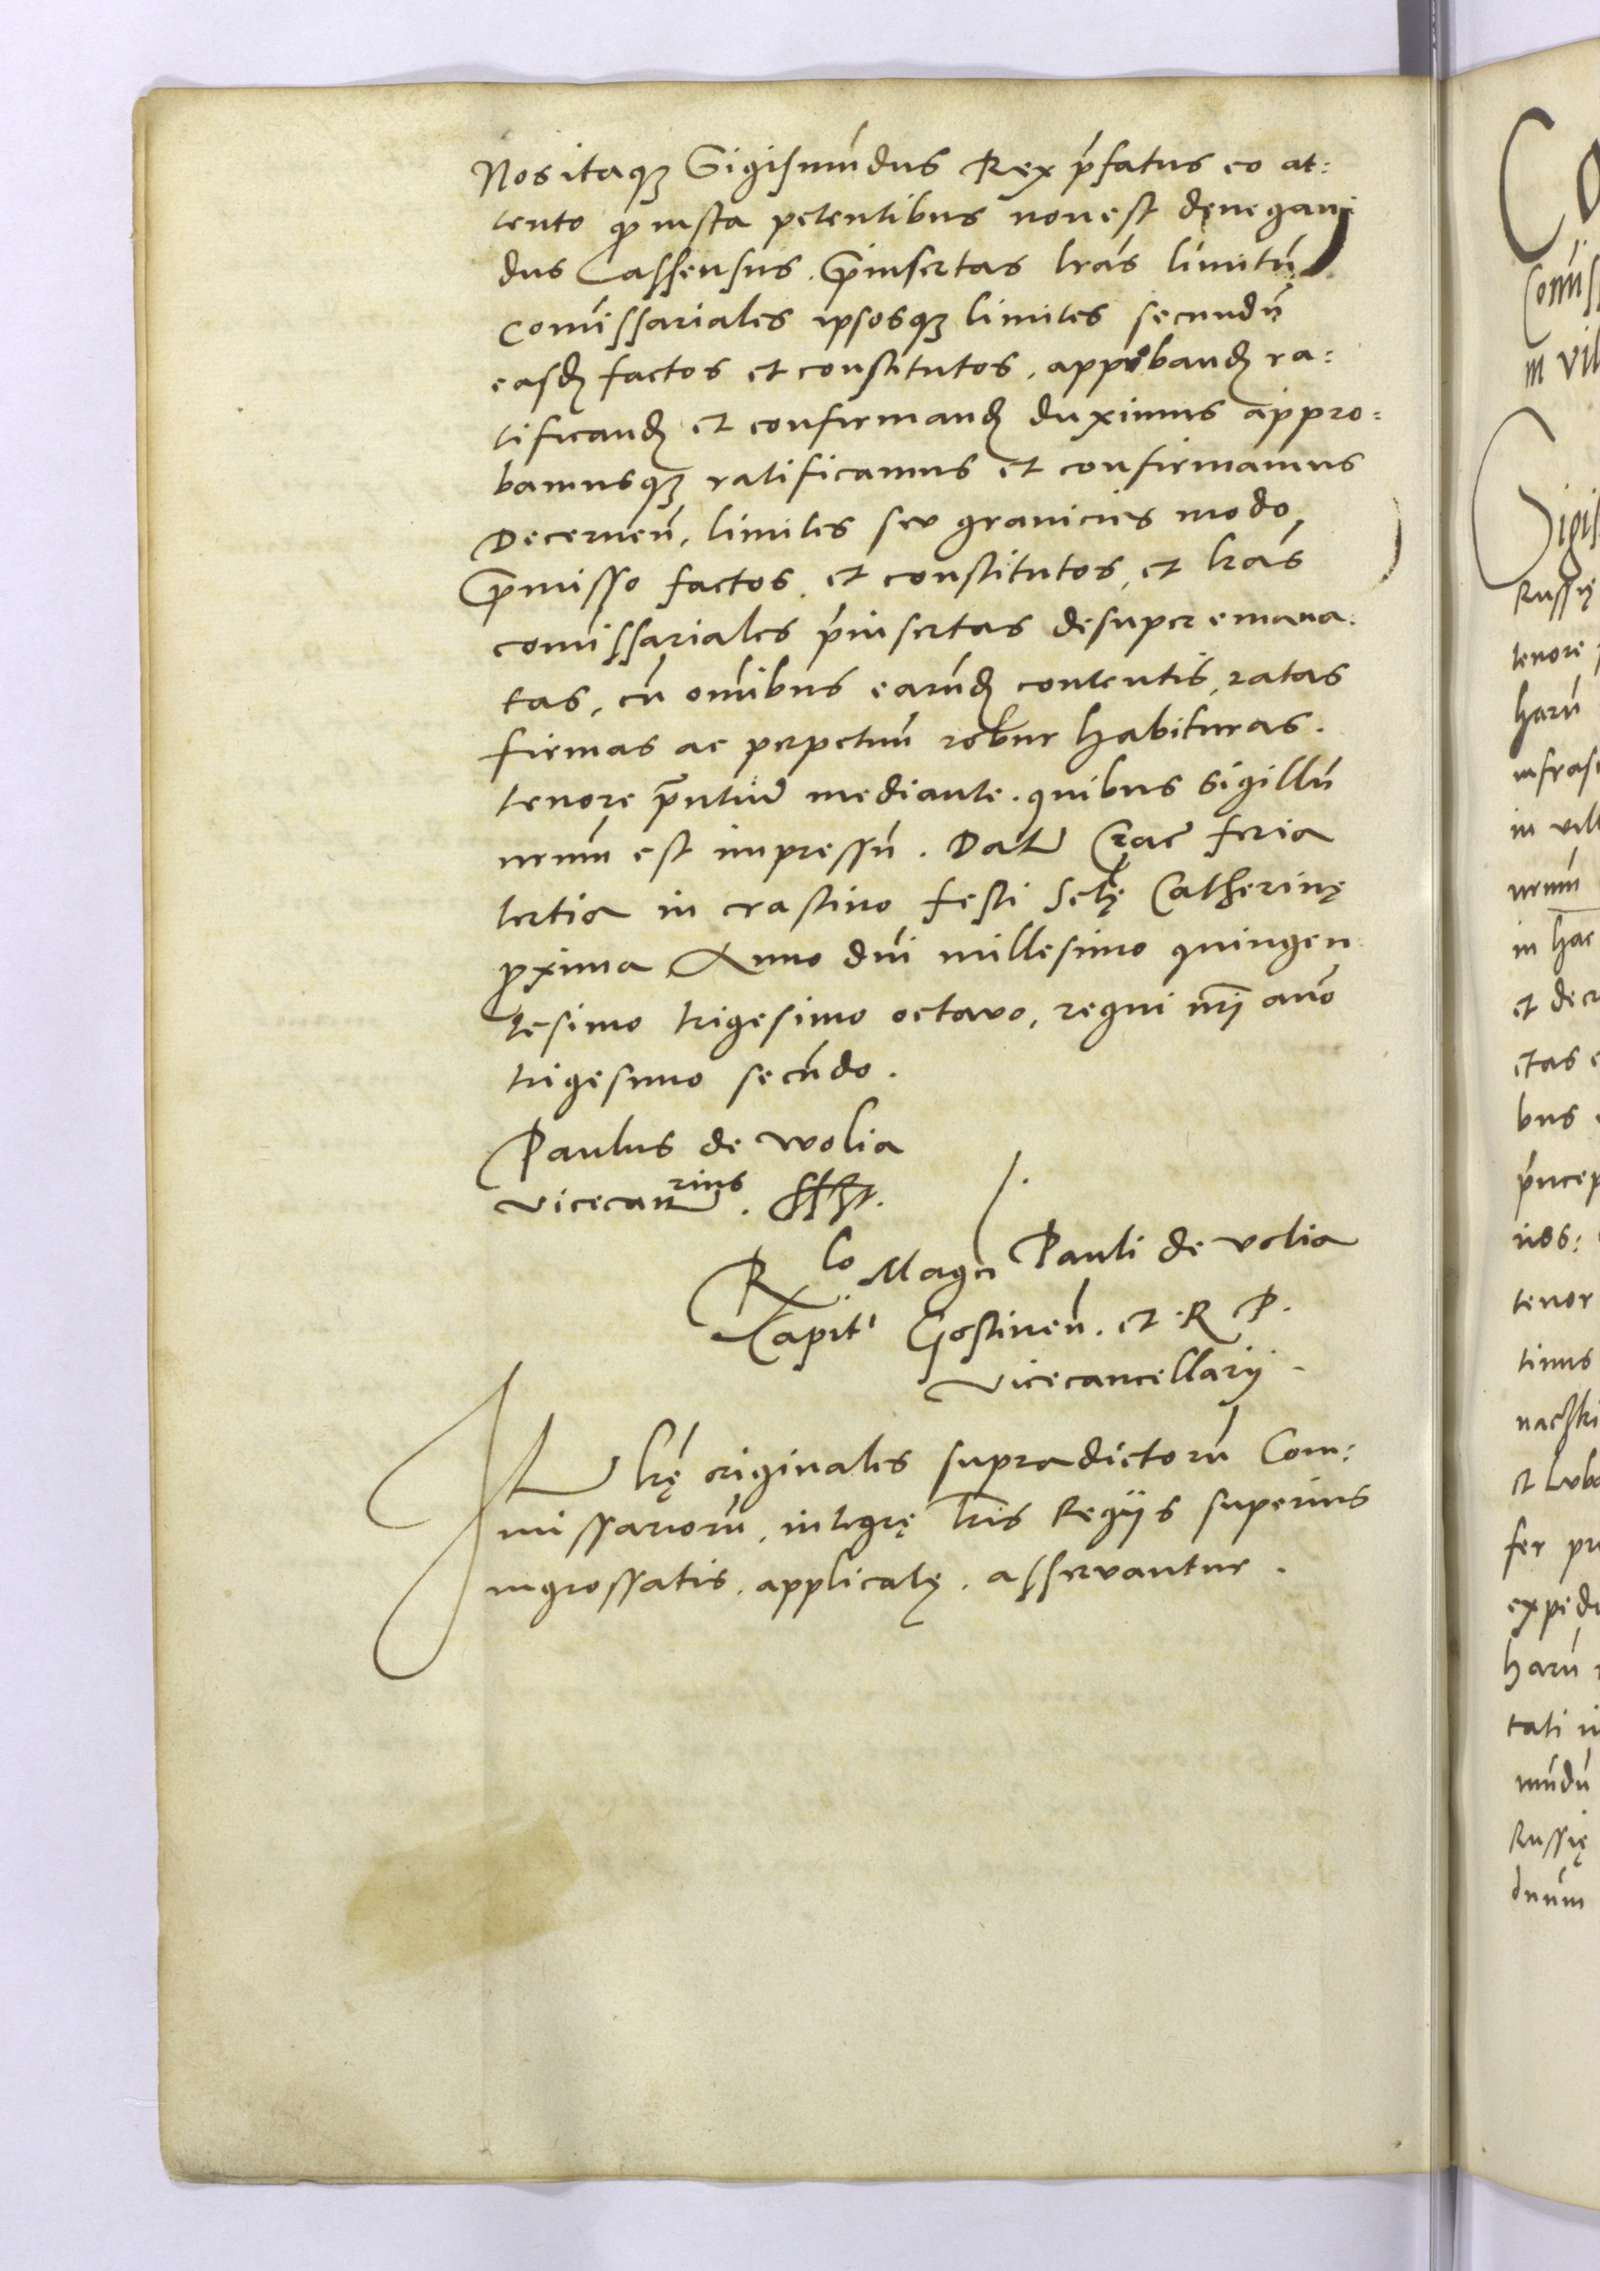 Nos itaq₃ Sigismūdus Rex p̄fatus eo at:
tento ꝙ iusta petentibus non est denegan:
dus assensus. p̄insertas l̄ras limitū
Com̄issariales ipsosq₃ limites secundū
easd̄ factos et constitutos, approband̄ ra:
tificand̄ et confirmand̄ duximus appro:
bamusq₃ ratificamus et confirmamus
Decernen̄, limites seu granicies modo
p̄misso factos et constitutos, et l̄ras
com̄issariales p̄insertas desuper emana:
tas, cū om̄ibus earūd̄ contentis, ratas
firmas ac perpetuū robur habituras.
tenore p̄ntiū mediante. quibus sigillū
nr̄um est impressū. Datū Crac̄ feria
tertia in crastino festi Sctę Catherinę
ꝓxima Anno dn̄i millesimo quingen:
tesimo trigesimo octavo, regni nr̄i an̄o
trigesimo secūdo.
Paulus de wolia
vicecancͬⁱᵘˢ. sšt.
Rˡᵒ Magci Pauli de volia
Capitⁱ Gostinen̄. et R P.
vicecancellarij.
It l̄rę originales supradictorū Com:
missariorū, integrę l̄ris Regijs superius
ingrossatis, applicatę, asservantur.
Com̄iss
in vil
Sigis
Russię
tenore
harū
infras
in vill
nr̄um
in hac
et decr
etas
bus
p̄ncep
nos:
tenor
timus
et Lub
fer
expedi
harū
tati
mūdū
Russię